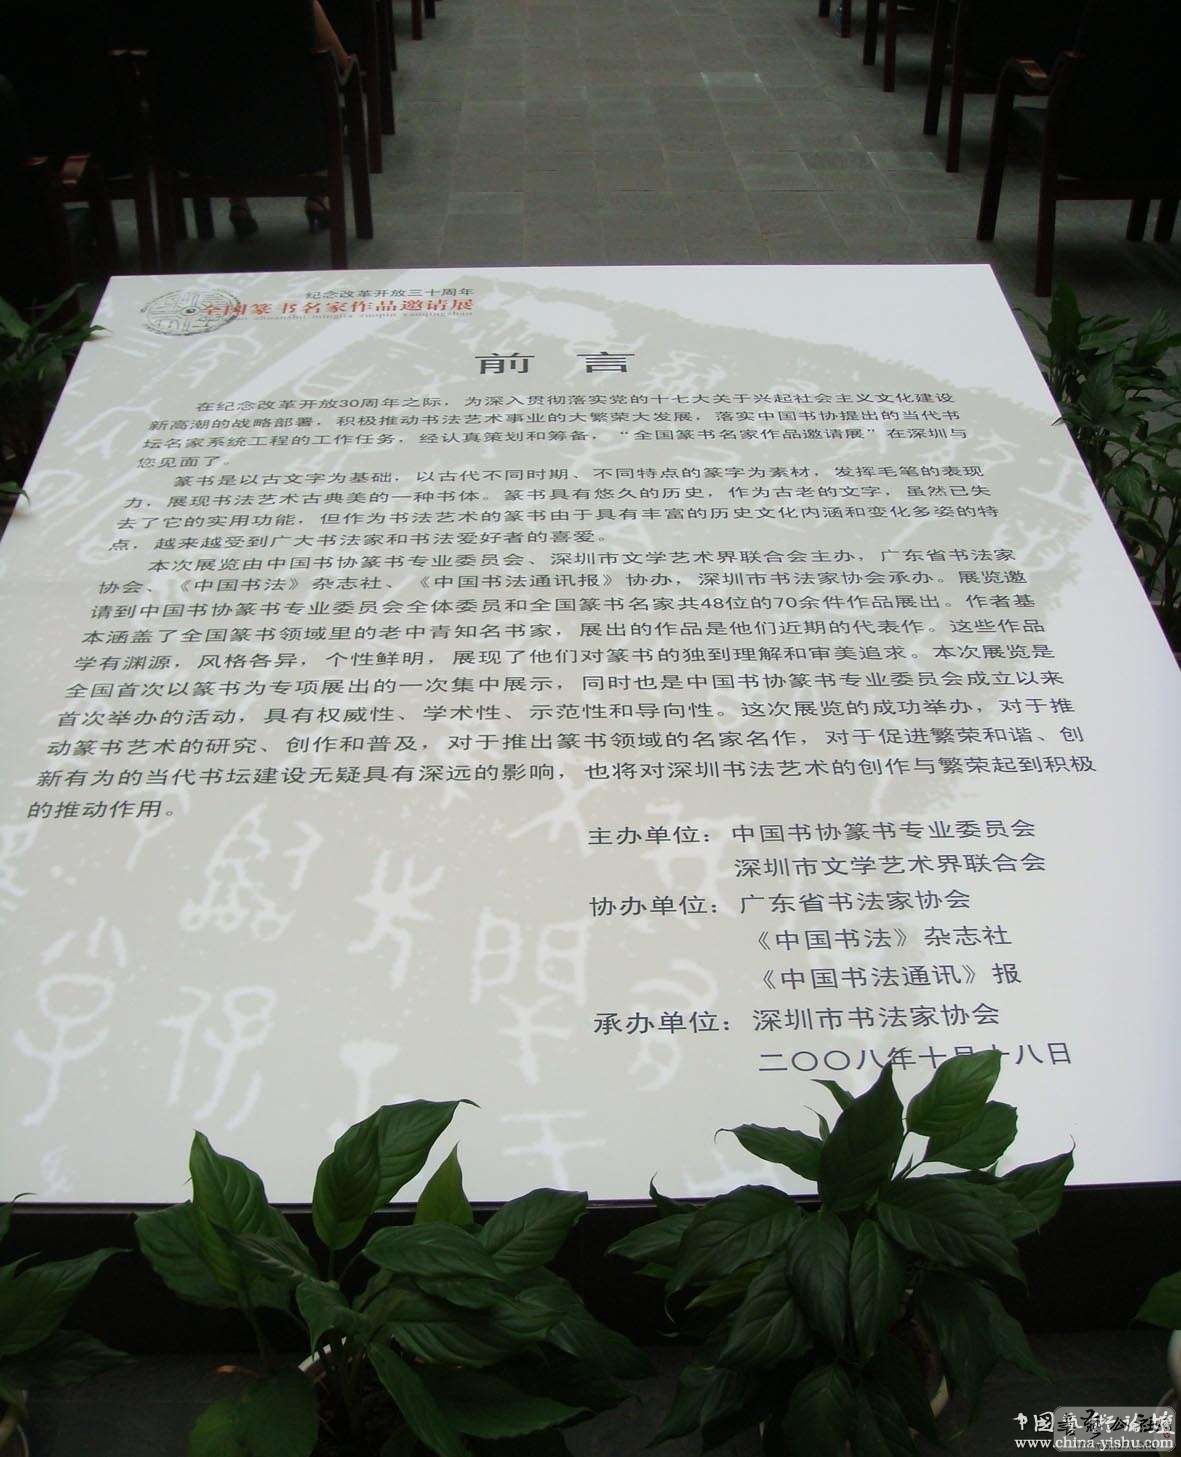 纪念改革开放三十周年
全国篆书名家作品邀请展
前言
在纪念改革开放30周年之际，为深入贯彻落实党的十七大关于兴起社会主义文化建设
新高潮的战略部署，积极推动书法艺术事业的大繁荣大发展，落实中国书协提出的当代书
坛名家系统工程的工作任务，经认真策划和筹备，“全国篆书名家作品邀请展”在深圳与
您见面了。
篆书是以古文字为基础，以古代不同时期、不同特点的篆字为素材，发挥毛笔的表现
力，展现书法艺术古典美的一种书体。篆书具有悠久的历史，作为古老的文字，虽然已失
去了它的实用功能，但作为书法艺术的篆书由于具有丰富的历史文化内涵和变化多姿的特
点，越来越受到广大书法家和书法爱好者的喜爱。
本次展览由中国书协篆书专业委员会、深圳市文学艺术界联合会主办，广东省书法家
协会、《中国书法》杂志社、《中国书法通讯报》协办，深圳市书法家协会承办。展览邀
请到中国书协篆书专业委员会全体委员和全国篆书名家共48位的70余件作品展出。作者基
本涵盖了全国篆书领域里的老中青知名书家，展出的作品是他们近期的代表作。这些作品
学有渊源，风格各异，个性鲜明，展现了他们对篆书的独到理解和审美追求。本次展览是
全国首次以篆书为专项展出的一次集中展示，同时也是中国书协篆书专业委员会成立以来
首次举办的活动，具有权威性、学术性、示范性和导向性。这次展览的成功举办，对于推
动篆书艺术的研究、创作和普及，对于推出篆书领域的名家名作，对于促进繁荣和谐、创
新有为的当代书坛建设无疑具有深远的影响，也将对深圳书法艺术的创作与繁荣起到积极
的推动作用。
主办单位：中国书协篆书专业委员会
深圳市文学艺术界联合会
协办单位：广东省书法家协会
《中国书法》杂志社
《中国书法通讯》报
承办单位：深圳市书法家协会
二〇〇八年十月十八日
中国艺术论坛
www.china-yishu.com